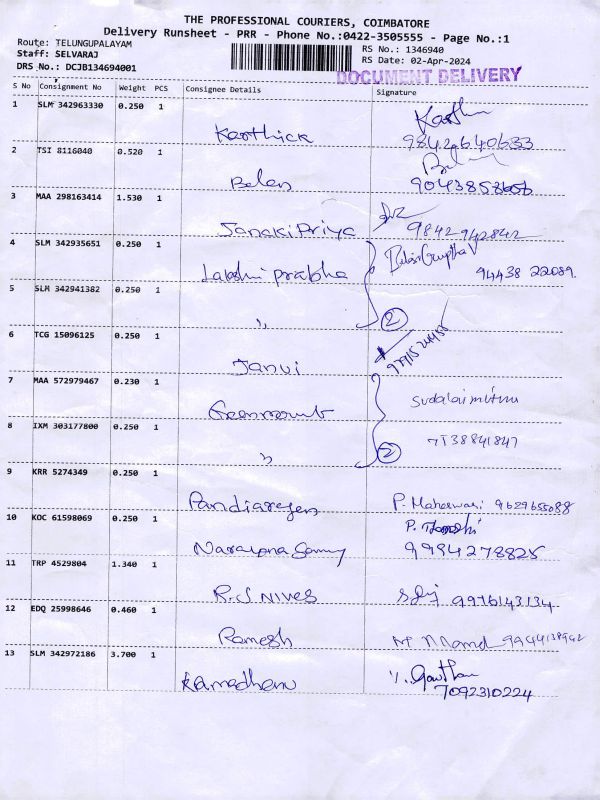 THE PROFESSIONAL COURIERS, COIMBATORE
Delivery Runsheet - PRR - Phone No.:0422-3505555 - Page No.:1
Route: TELUNGUPALAYAM
Staff: SELVARAJ
DRS No.: DCJB134694001
RS No.: 1346940
RS Date: 02-Apr-2024
DOCUMENT DELIVERY
S No Consignment No Weight PCS Consignee Details Signature
1 SLM 342963330 0.250 1
Karthick 9842640633
2 TSI 8116040 0.520 1
Balan
3 MAA 298163414 1.530 1
JanakiPriya 9842942842
4 SLM 342935651 0.250 1
Lakshmi prabha 94438 22089.
5 SLM 342941382 0.250 1
" 2
6 TCG 15096125 0.250 1
Janvi
7 MAA 572979467 0.230 1
Greenmount Sudalaimuthu
8 IXM 303177800 0.250 1
" 2
9 KRR 5274349 0.250 1
Pandiarajan P. Maheswari 9629655088
10 KOC 61598069 0.250 1
Narayanasamy 9994278825
11 TRP 4529804 1.340 1
R.S NIVES 9976143134
12 EDQ 25998646 0.460 1
Ramesh
13 SLM 342972186 3.700 1
Ramadhanu 7092310224